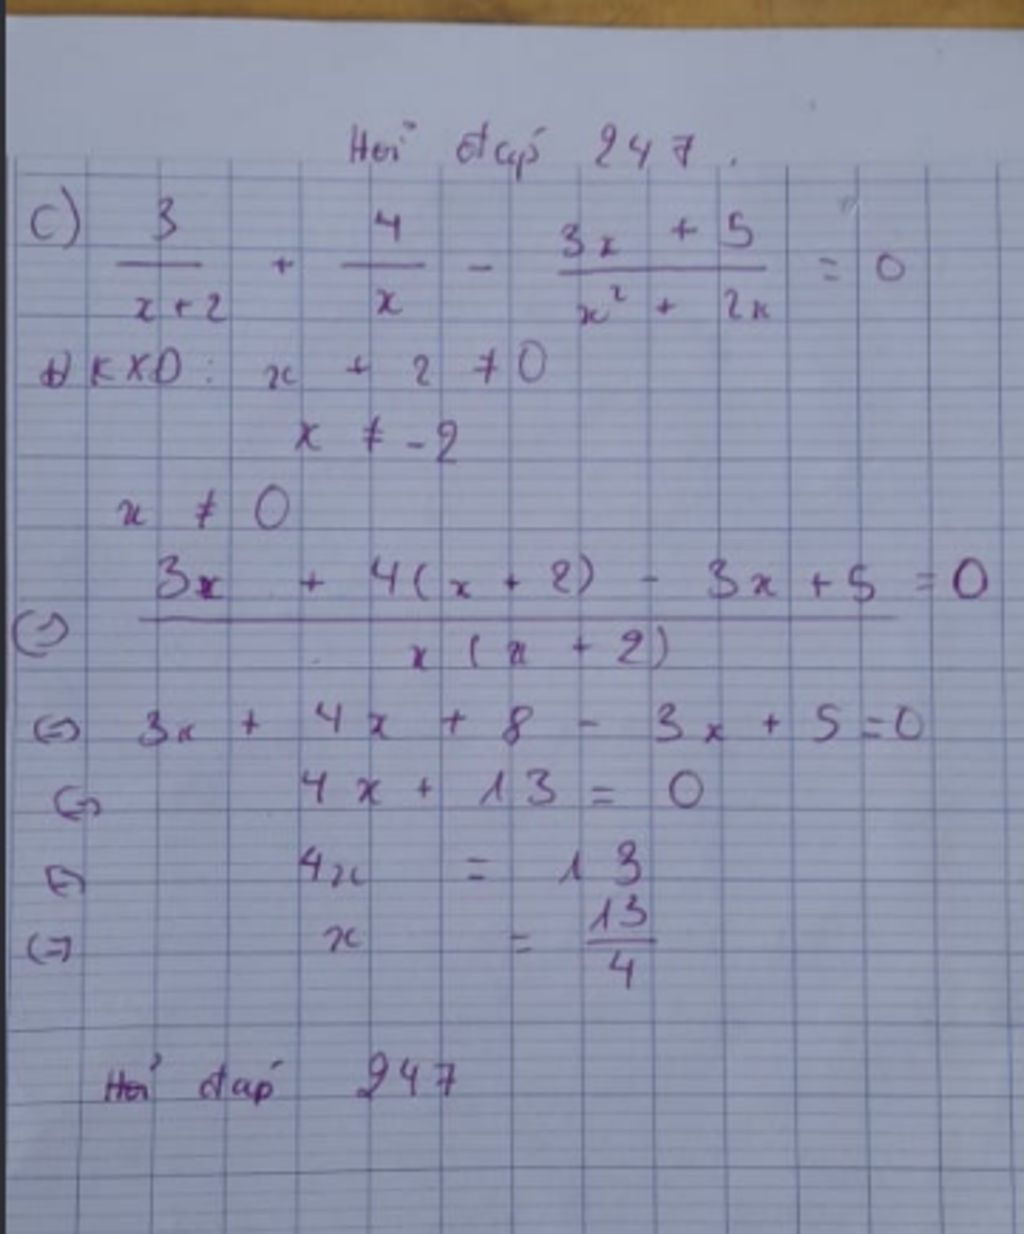 Hỏi đáp 247.
c) 3/(x+2) + 4/x - (3x + 5)/(x² + 2x) = 0
ĐKXD: x + 2 ≠ 0
x ≠ -2
x ≠ 0
(=) (3x + 4(x + 2) - 3x + 5)/(x(x + 2)) = 0
(=) 3x + 4x + 8 - 3x + 5 = 0
(=) 4x + 13 = 0
(=) 4x = 13
(=) x = 13/4
Hỏi đáp 247